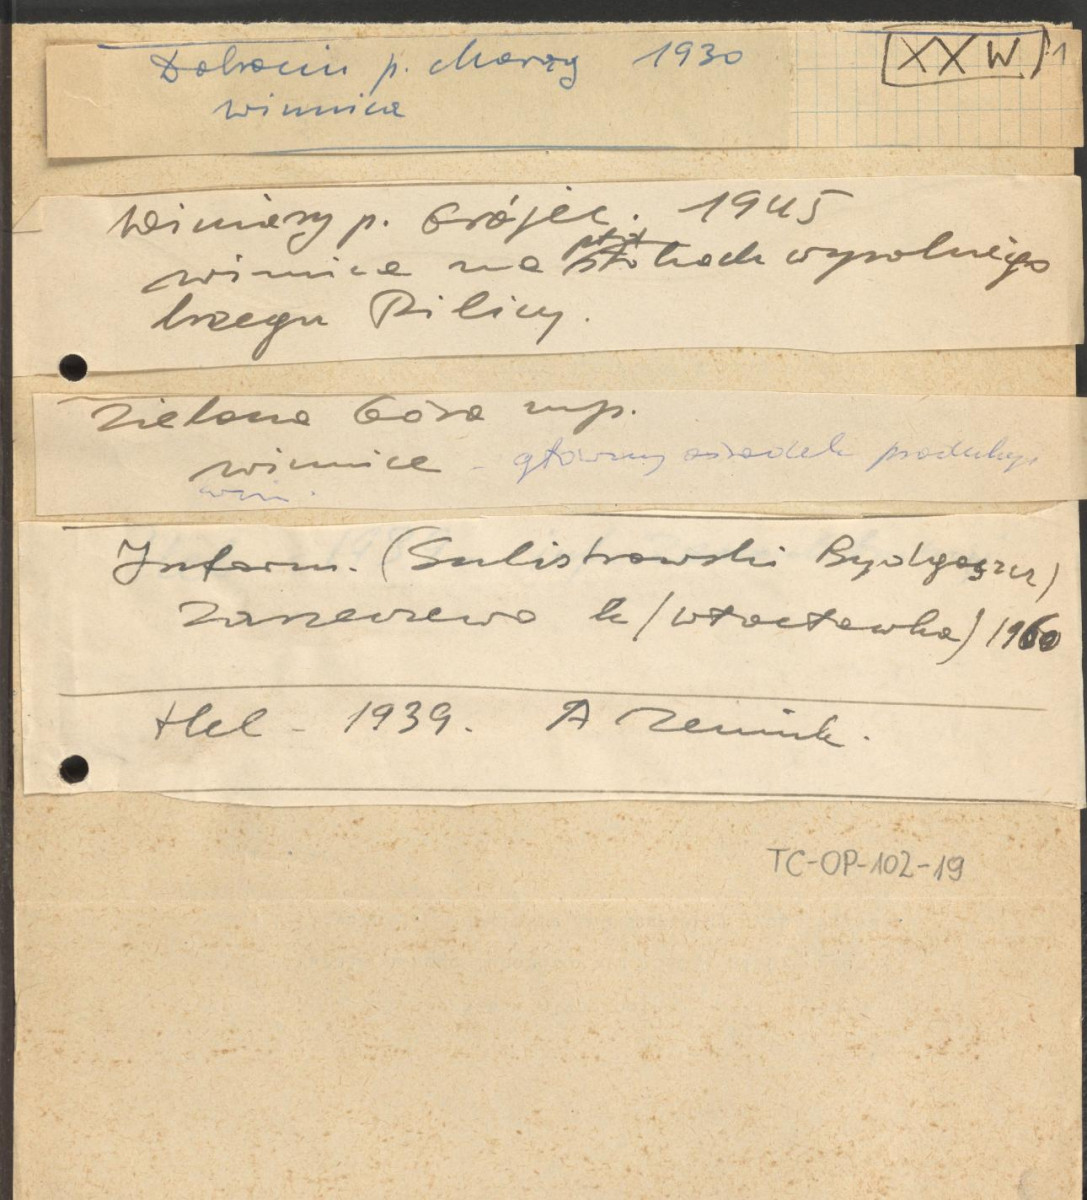 Dobrocin p. Morąg 1930
XXW 1
winnica
Winiary p. Grójec. 1945
winnica na stokach wysokiego
brzegu Pilicy.
Zielona Góra
winnice - główny ośrodek produkcji
win.
Inform. (Sulistrowski Bydgoszcz)
k/Włocławka) 1960
Hel - 1939. A Rzemink.
TC-OP-102-19